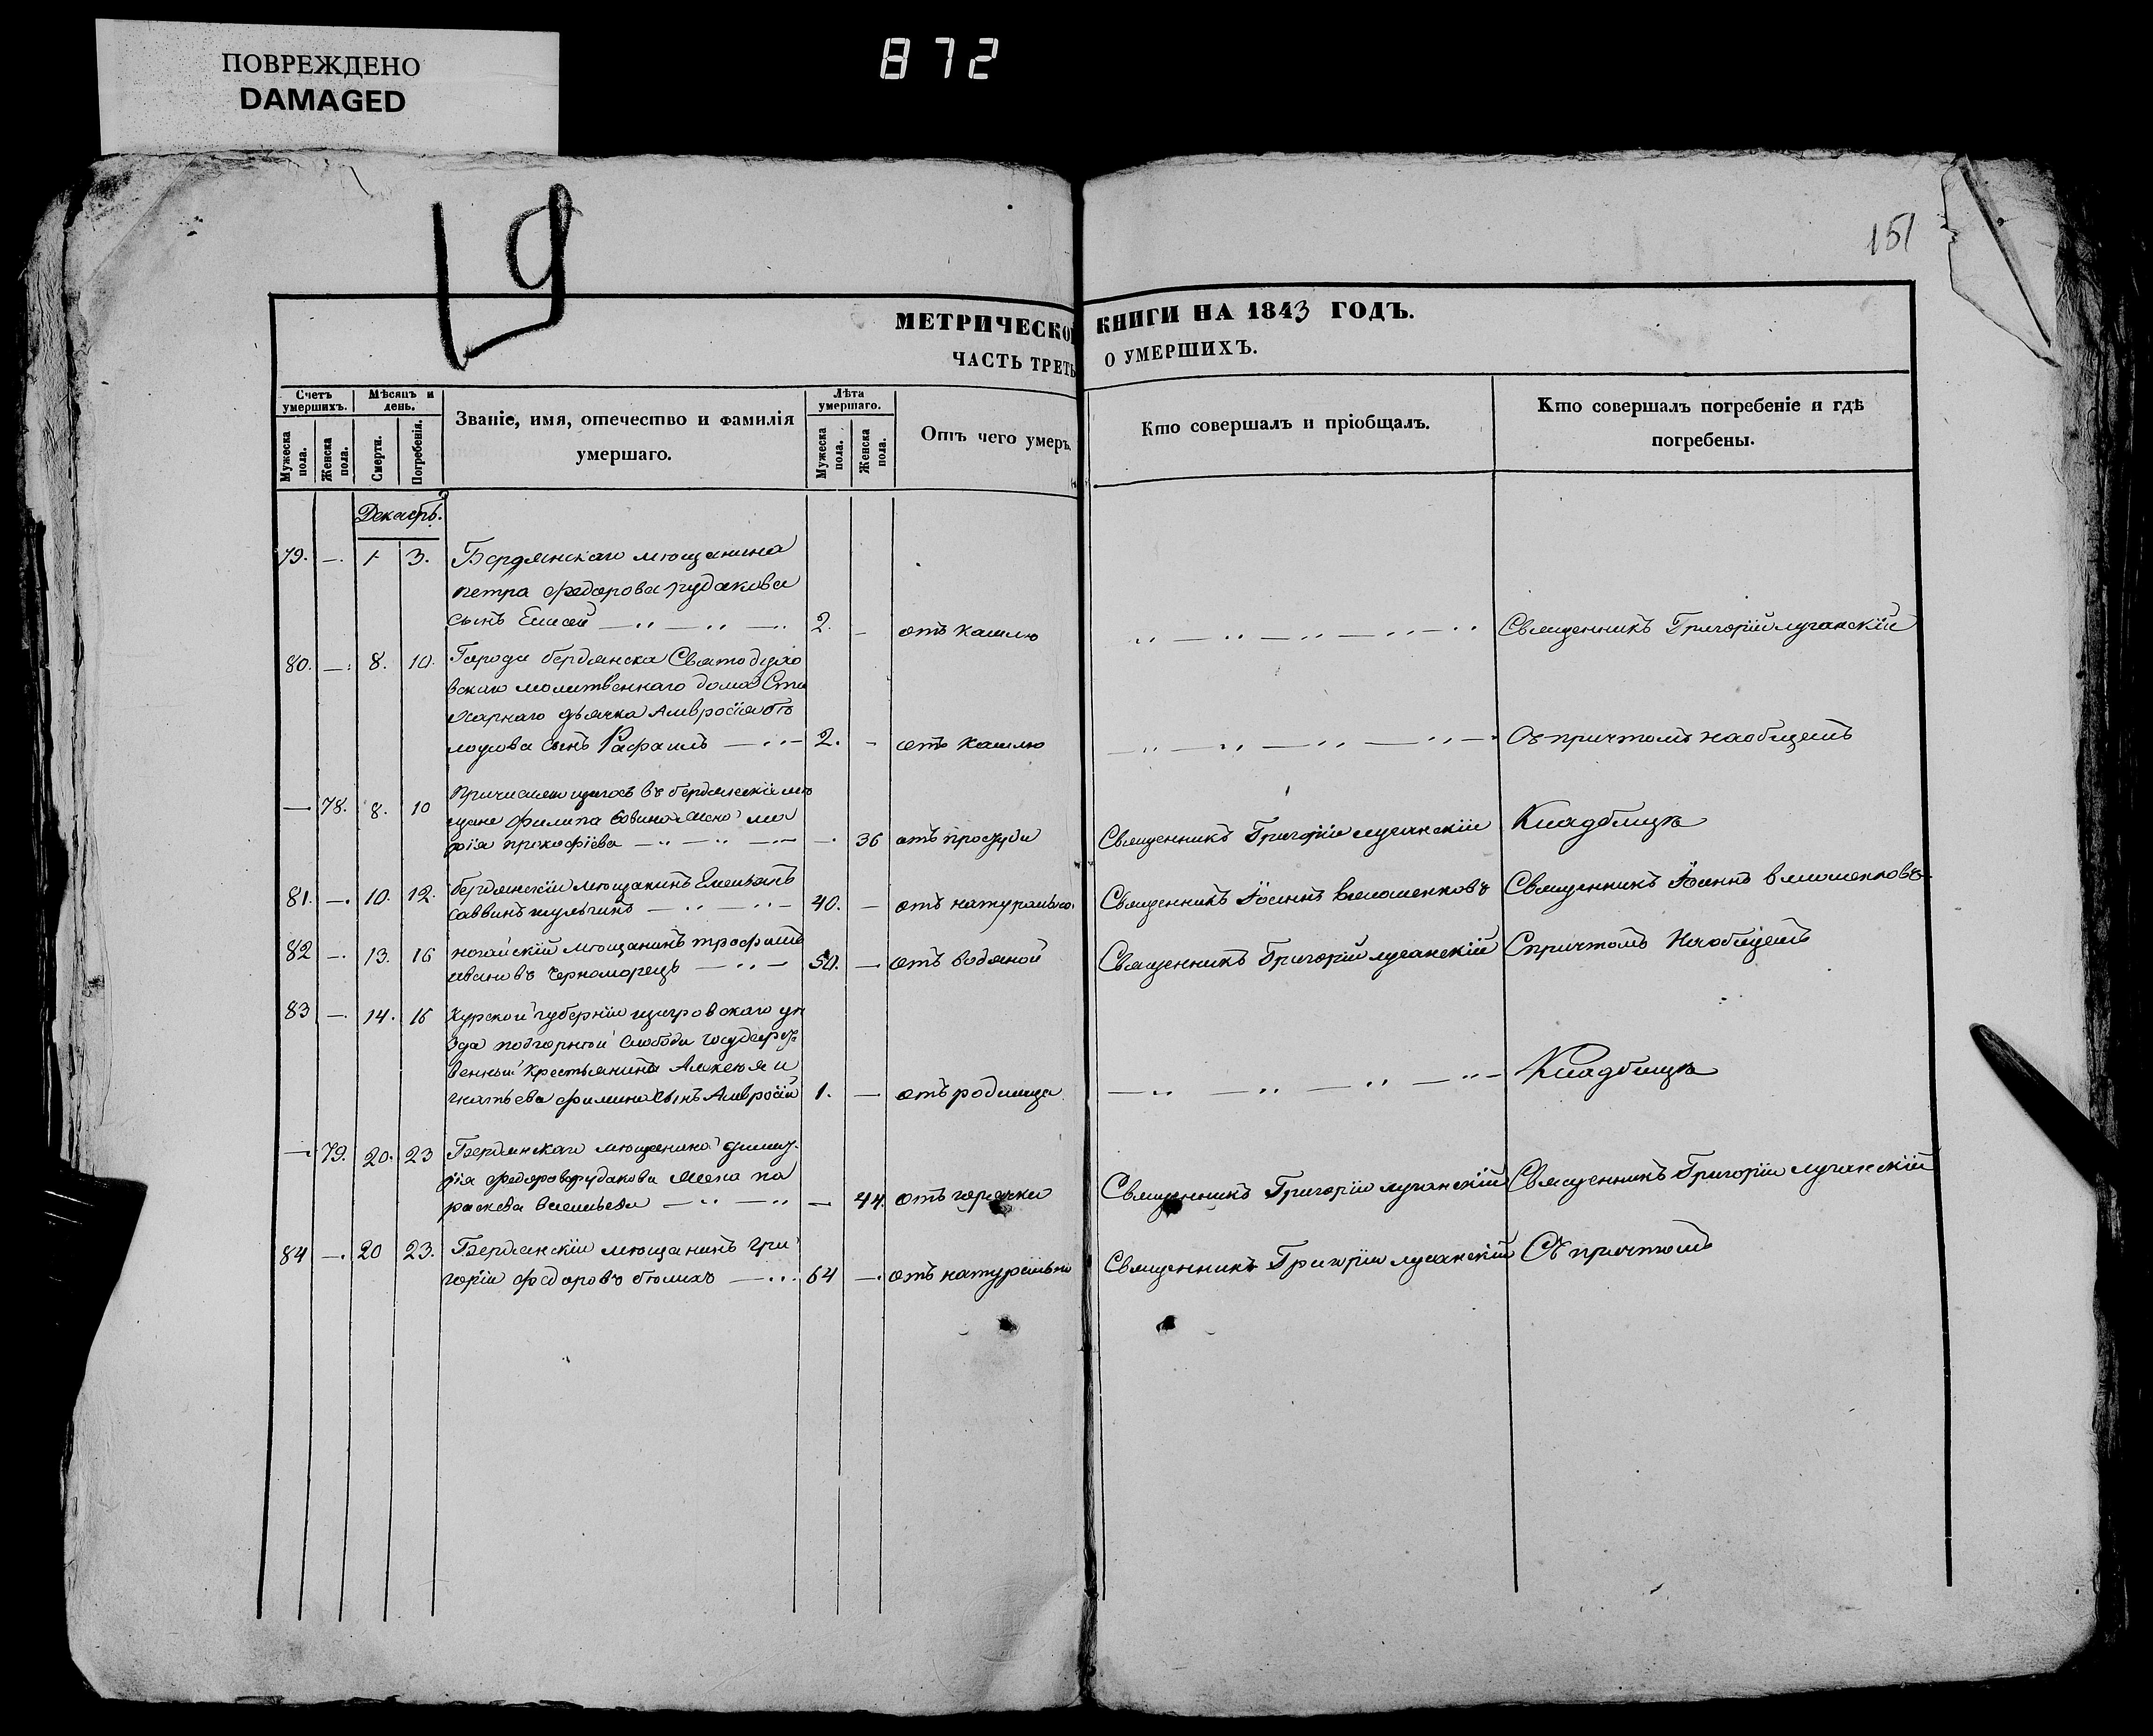 ПОВРЕЖДЕНО
DAMAGED
872
19
151
МЕТРИЧЕСКО КНИГИ НА 1843 ГОДЪ.
ЧАСТЬ ТРЕТЬ О УМЕРШИХЪ.
Счетъ умершихъ.
Мужеска пола.
Женска пола.
Мѣсяцъ и день.
Смерти.
Погребенія.
Званіе, имя, отечество и фамилія умершаго.
Лѣта умершаго.
Мужеска пола.
Женска пола.
Отъ чего умеръ.
Кто совершалъ и пріобщалъ.
Кто совершалъ погребеніе и гдѣ погребены.
Декабрь.
79. —. 1 3. Бердянскаго мѣщанина
петра федорова рудакова
сынъ Елисей 2. — отъ кашлю Священникъ Григорій луганскій
80. —. 8. 10. Города бердянска Святодухо
вскаго молитвеннаго дома Сти
харнаго дьячка Амвросія
сынъ Рафаилъ 2. — отъ кашлю Съ причтомъ наобщемъ
— 78. 8. 10 въ бердянскіе мѣ
щане филипа жена ма
рія прокофіева — 36 отъ простуди Священникъ Григорій луганскій Кладбищѣ
81. —. 10. 12. бердянскій мѣщанинъ Емельянъ
саввинъ 40. — отъ натурально Священникъ Іоаннъ Священникъ Іоаннъ
82 —. 13. 16 ногайскій мѣщанинъ трофимъ
ивановъ Черноморецъ 50. — отъ водяной Священникъ Григорій луганскій Спричтомъ Наобщемъ
83 —. 14. 16 Курской губерніи щигровскаго уѣ
зда подгорной слободи государст
венный крестьянина Алексея и
гнатьева филина сынъ Амвросій 1. — отъ родимца Кладбищѣ
— 79. 20. 23 Бердянскаго мѣщанина димит
рія федорова рудакова жена па
раскева васильева — 44. отъ горячки Священникъ Григорій луганскій Священникъ Григорій луганскій
84 —. 20 23. Бердянскій мѣщанинъ гри
горій федоровъ 64 —. отъ натурально Священникъ Григорій луганскій Съ причтомъ